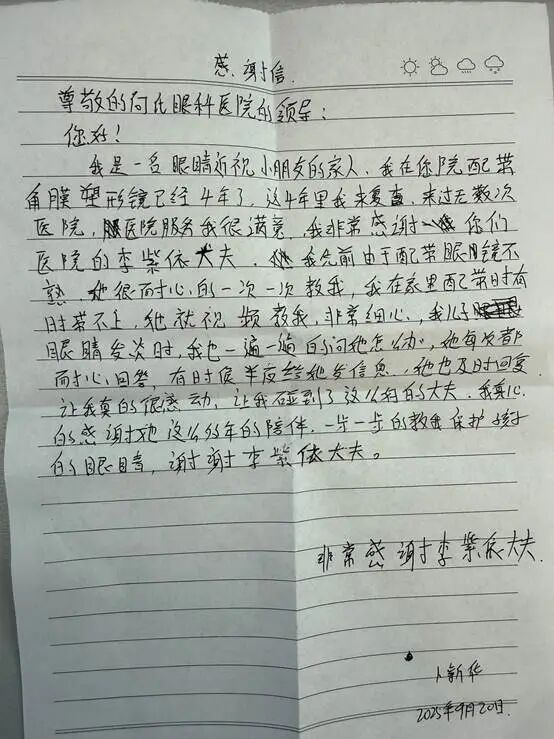 感谢信
尊敬的何氏眼科医院的领导：
您好！
我是一名眼睛近视小朋友的家人、我在您院配带
角膜塑形镜已经4年了，这4年里我来复查，来过无数次
医院，医院服务我很满意，我非常感谢你们
医院的李紫依大夫．我先前由于配带眼镜不
熟．她很耐心的一次一次教我，我在家里配带时有
时带不上，她就视频教我，非常细心、我儿子
眼睛发炎时，我也一遍一遍的问她怎么办，她每次都
耐心回答，有时候半夜给她发信息．她也及时回复
让我真的很感动，让我碰到了这么好的大夫．我真心
的感谢她这么多年的陪伴．一步一步的教我保护孩子
的眼睛，谢谢李紫依大夫。
非常感谢李紫依大夫
卜新华
2025年9月20日